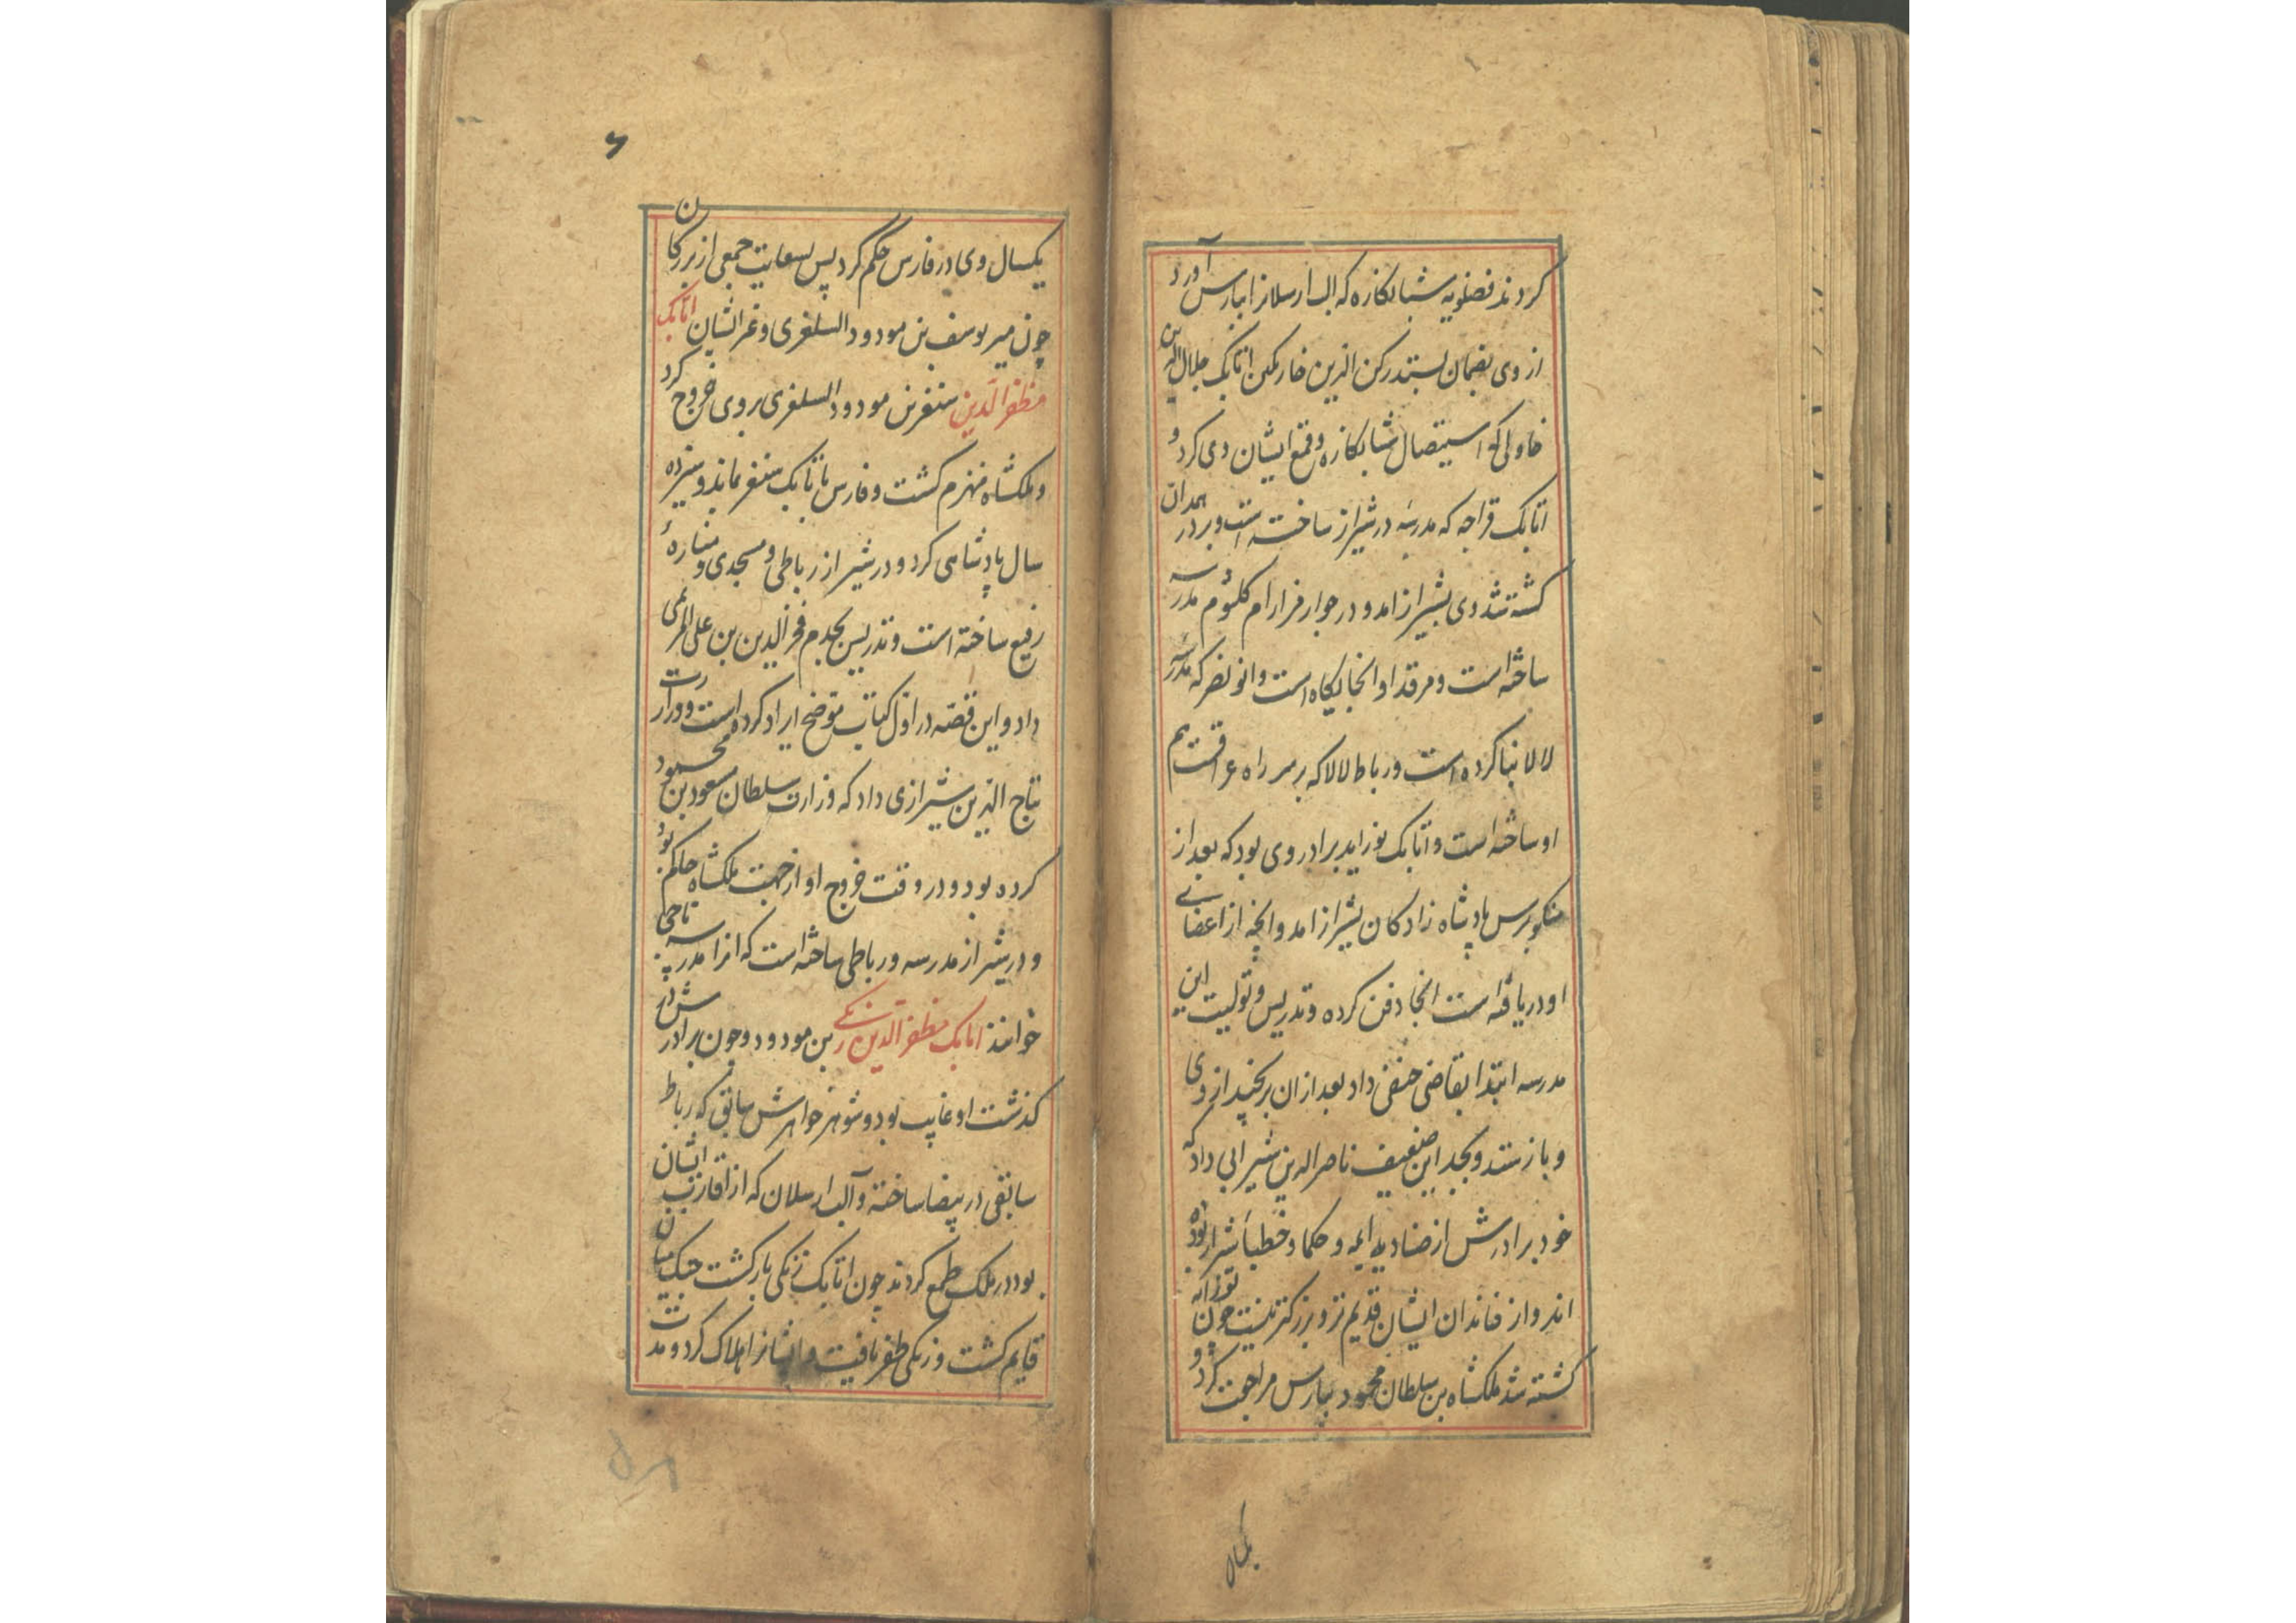 کردند فضلویه شبانکاره که الب ارسلانرا بپارس آورد
از وی بضمان بستد رکن الدین خمارتکین اتابک جلال الدین
جاولی که استیصال شبانکاره و قمع ایشان وی کرد و
اتابک قراجه که مدرسه در شیراز ساخته است و بر در همدان
کشته شد وی بشیراز امد و در جوار مزار ام کلثوم مدرسه
ساخته است و مرقد او انجایکاه است و که مدرسه
لالا بنا کرده است و رباط لالا که بر سر راه عراقست هم
او ساخته است و اتابک بوزابه برادر وی بود که بعد از
منکوبرس پادشاه زادکان بشیراز امد و انچه از اعضای
او دریافته است انجا دفن کرده و تدریس و تولیت این
مدرسه ابتدا بقاضی حنفی داد بعد از ان برنجید از وی
و باز ستد و بجد این ضعیف ناصر الدین شرابی داد که
خود برادرش از صنادید ایمه و حکما و خطباء شیراز بوده
اند و از خاندان ایشان قدیم تر و بزرکتر نیست چون بوزابه
کشته شد ملکشاه بن سلطان محمود بپارس مراجعت کرد و
یکسال
۶
یکسال وی در فارس حکم کرد پس بسعایت جمعی از بزرکان
چون میر یوسف بن مودود السلغری و غیر ایشان اتابک
مظفر الدین سنقر بن مودود السلغری بر وی خروج کرد
و ملکشاه منهزم کشت و فارس باتابک سنقر بماند و سیزده
سال پادشاهی کرد و در شیراز رباطی و مسجدی و مناره
رفیع ساخته است و تدریس بجدم فخر الدین بن علی
داد و این قصه در اول کتاب موضح ایراد کرده است و وزارت
بتاج الدین شیرازی داد که وزارت سلطان مسعود بن محمود
کرده بود و در وقت خروج او از جهت ملکشاه حاکم بود
و در شیراز مدرسه و رباطی ساخته است که انرا مدرسه تاجی
خوانند اتابک مظفر الدین زنکی بن مودود و چون برادرش در
کذشت او غایب بود و شوهر خواهرش سابق که رباط
سابقی در بیضا ساخته و آلب ارسلان که از اقارب ایشان
بود در ملک طمع کردند چون اتابک زنکی بازکشت جنک میان
قایم کشت و زنکی ظفر یافت و ایشانرا هلاک کرد و مدت